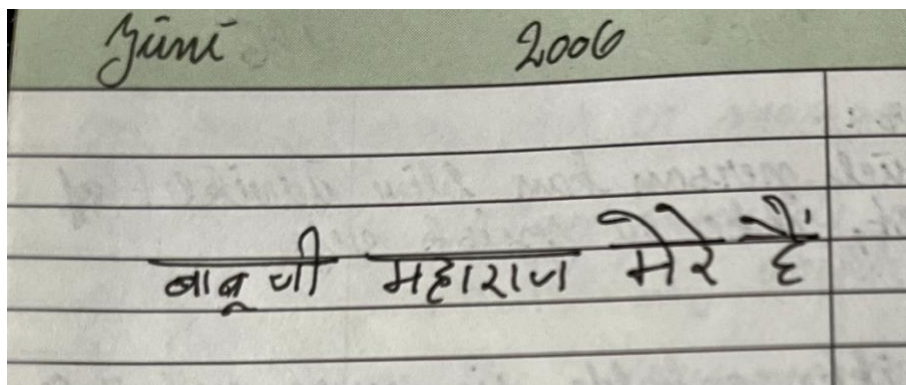 Jüni 2006
बाबू जी महाराज मेरे हैं